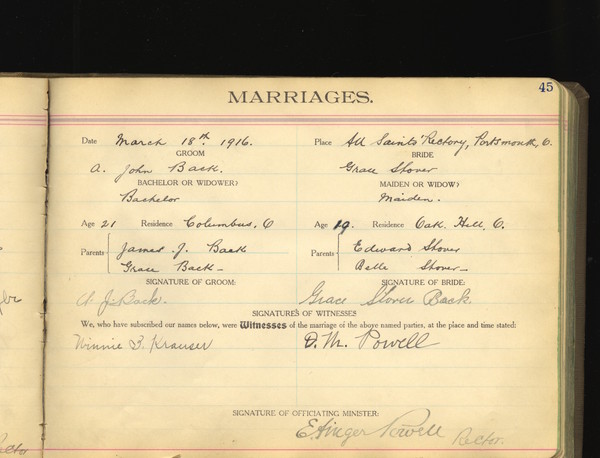 45
MARRIAGES.
Date March 18th. 1916. Place All Saints' Rectory, Portsmouth, O.
GROOM BRIDE
A. John Back. Grace Stover
BACHELOR OR WIDOWER? MAIDEN OR WIDOW?
Bachelor Maiden.
Age 21 Residence Columbus, O Age 19. Residence Oak. Hill, O.
Parents James J. Back Parents Edward Stover
Grace Back Belle Stover
SIGNATURE OF GROOM: SIGNATURE OF BRIDE:
A J. Back. Grace Stover Back.
SIGNATURE'S OF WITNESSES
We, who have subscribed our names below, were Witnesses of the marriage of the above named parties, at the place and time stated:
Winnie B. Krauser D. M. Powell
SIGNATURE OF OFFICIATING MINISTER:
E. Ainger Powell Rector.